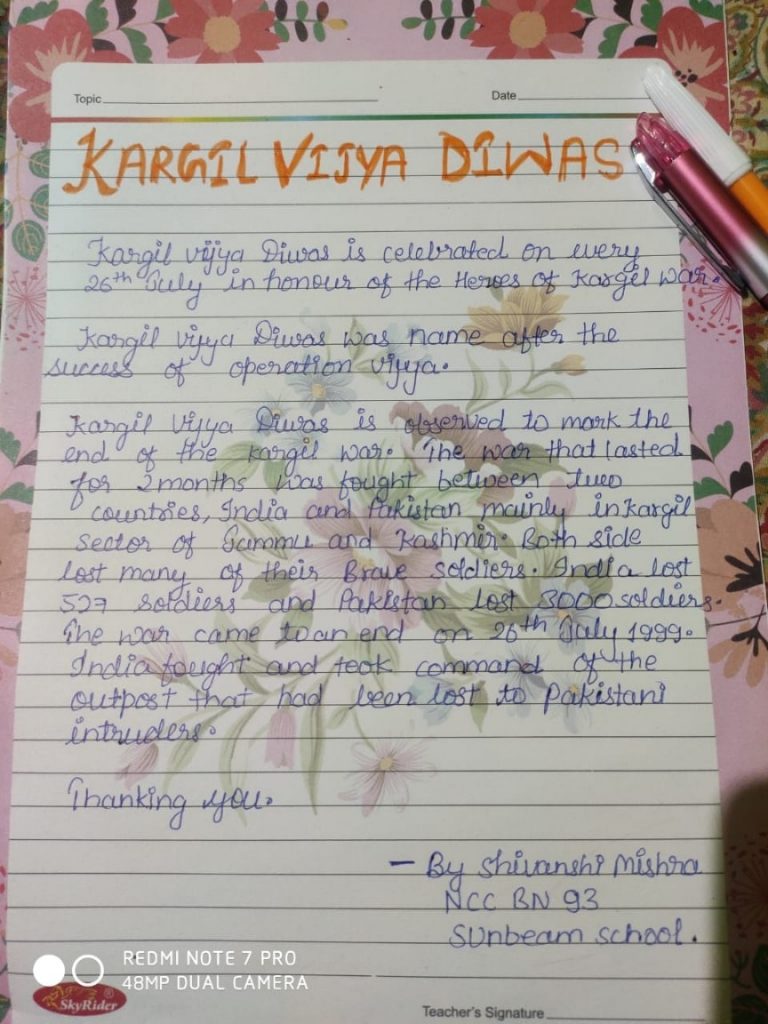 Topic
Date
KARGIL VIJYA DIWAS
Kargil vijya Diwas is celebrated on every
26th July in honour of the Heroes of Kargil war.
Kargil vijya Diwas was name after the
success of operation vijya.
Kargil vijya Diwas is observed to mark the
end of the kargil war. The war that lasted
for 2 months was fought between two
countries, India and Pakistan mainly in Kargil
Sector of Jammu and Kashmir. Both side
lost many of their Brave soldiers. India lost
527 soldiers and Pakistan lost 3000 soldiers.
The war came to an end on 26th July 1999.
India fought and took command of the
outpost that had been lost to Pakistani
intruders.
Thanking you.
- By Shivanshi Mishra
NCC BN 93
SUnbeam school.
REDMI NOTE 7 PRO
48MP DUAL CAMERA
SkyRider
Teacher's Signature